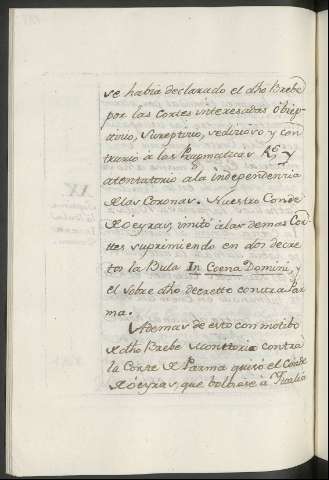 se habia declarado el dho Brebe
por las Cortes interesadas Obrep-
ticio, Sureptivio, sedicioso y con
trario á las Pragmaticas Rs y
atentatorio ala independencia
de las Coronas. Nuestro Conde
de Oeyras, imitó á las demas Cor-
ttes suprimiendo en dos decre
tos la Bula In Coena Domini, y
el sobre dho decretto contra Par
ma.
Ademas de esto con motibo
de dho Brebe Monittorio contra
la Corte de Parma quiso el Conde
de Oéyras, que bolbiese á